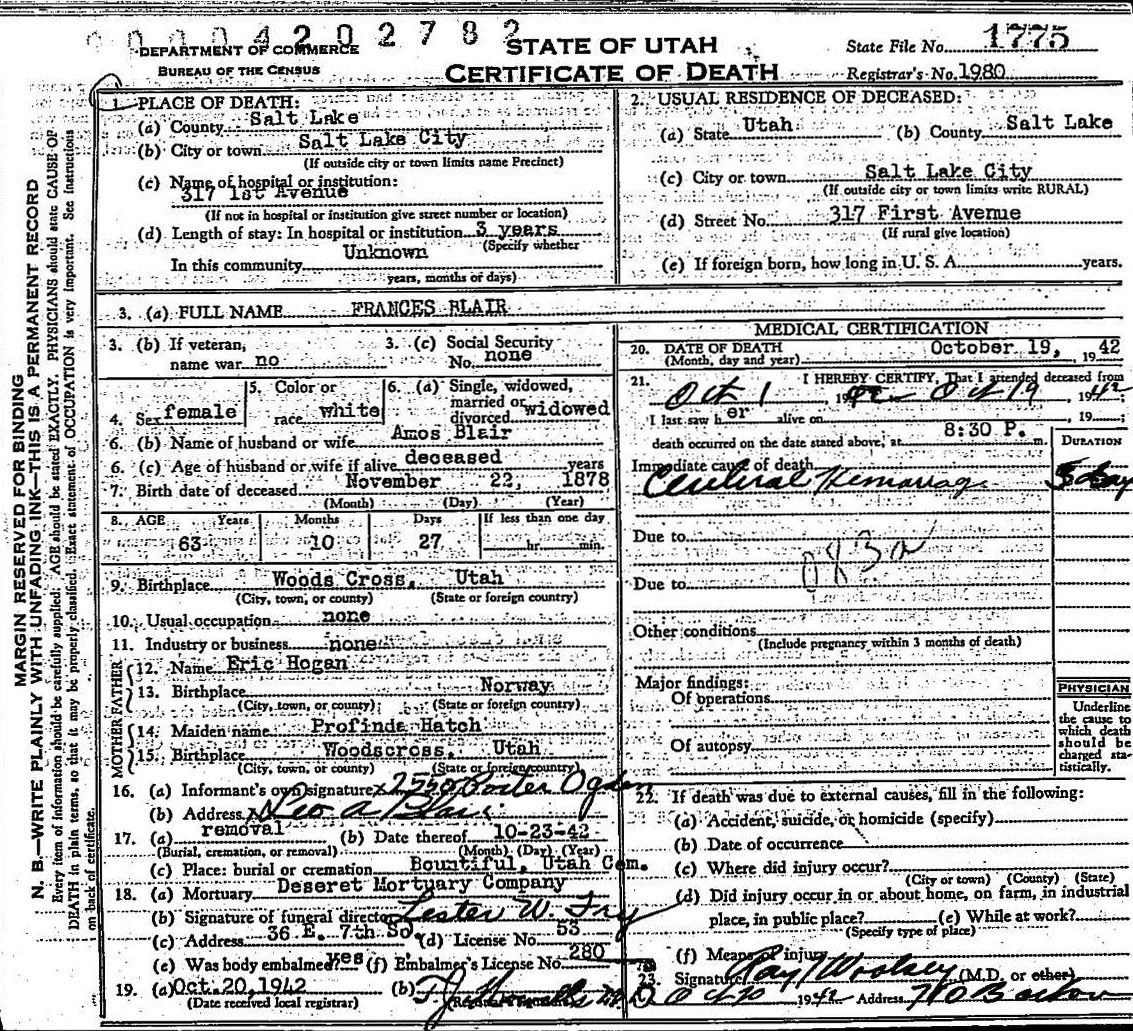 00004202782
DEPARTMENT OF COMMERCE
BUREAU OF THE CENSUS
STATE OF UTAH
CERTIFICATE OF DEATH
State File No. 1775
Registrar's No. 1980
MARGIN RESERVED FOR BINDING
N. B.—WRITE PLAINLY WITH UNFADING INK—THIS IS A PERMANENT RECORD
Every item of information should be carefully supplied. AGE should be stated EXACTLY. PHYSICIANS should state CAUSE OF
DEATH in plain terms, so that it may be properly classified. Exact statement of OCCUPATION is very important. See instructions
on back of certificate.
1. PLACE OF DEATH:
(a) County Salt Lake
(b) City or town Salt Lake City
(If outside city or town limits name Precinct)
(c) Name of hospital or institution:
317 1st Avenue
(If not in hospital or institution give street number or location)
(d) Length of stay: In hospital or institution 3 years
(Specify whether
In this community Unknown
years, months or days)
2. USUAL RESIDENCE OF DECEASED:
(a) State Utah (b) County Salt Lake
(c) City or town Salt Lake City
(If outside city or town limits write RURAL)
(d) Street No. 317 First Avenue
(If rural give location)
(e) If foreign born, how long in U. S. A. years.
3. (a) FULL NAME FRANCES BLAIR
3. (b) If veteran, name war no
3. (c) Social Security No. none
4. Sex female
5. Color or race white
6. (a) Single, widowed, married or divorced widowed
6. (b) Name of husband or wife Amos Blair
6. (c) Age of husband or wife if alive deceased years
7. Birth date of deceased November 22, 1878
(Month) (Day) (Year)
8. AGE Years Months Days If less than one day
63 10 27 hr. min.
9. Birthplace Woods Cross, Utah
(City, town, or county) (State or foreign country)
10. Usual occupation none
11. Industry or business none
FATHER
12. Name Eric Hogan
13. Birthplace Norway
(City, town, or county) (State or foreign country)
MOTHER
14. Maiden name Profinda Hatch
15. Birthplace Woodscross, Utah
(City, town, or county) (State or foreign country)
16. (a) Informant's own signature x 2550 Porter Ogden
(b) Address x Leo A Blair
17. (a) removal (b) Date thereof 10-23-42
(Burial, cremation, or removal) (Month) (Day) (Year)
(c) Place: burial or cremation Bountiful, Utah Cem.
18. (a) Mortuary Deseret Mortuary Company
(b) Signature of funeral director Lester W. Fry
(c) Address 36 E. 7th So. (d) License No. 53
(e) Was body embalmed? yes (f) Embalmer's License No. 280
19. (a) Oct. 20, 1942 (b)
(Date received local registrar)
MEDICAL CERTIFICATION
20. DATE OF DEATH October 19, 1942
(Month, day and year)
21. I HEREBY CERTIFY, That I attended deceased from
Oct 1 19 Oct 19 1942
I last saw her alive on 19
death occurred on the date stated above, at 8:30 P. m.
DURATION
Immediate cause of death
Cerebral Hemorrage 5 day
Due to
083a
Due to
Other conditions
(Include pregnancy within 3 months of death)
Major findings:
Of operations
Of autopsy
PHYSICIAN
Underline
the cause to
which death
should be
charged sta-
tistically.
22. If death was due to external causes, fill in the following:
(a) Accident, suicide, or homicide (specify)
(b) Date of occurrence
(c) Where did injury occur?
(City or town) (County) (State)
(d) Did injury occur in or about home, on farm, in industrial
place, in public place? (e) While at work?
(Specify type of place)
(f) Means of injury
23. Signature Ray Woolsey (M.D. or other)
Oct 20 1942 Address